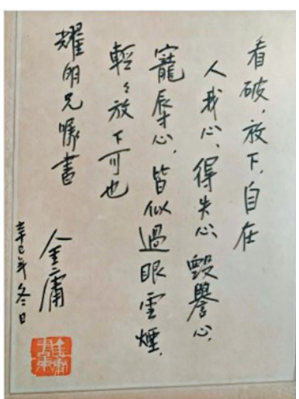 看破，放下，自在
人我心，得失心，毀譽心，
寵辱心，皆似過眼雲煙，
輕々放下可也
耀明兄囑書
金庸
辛巳年冬日